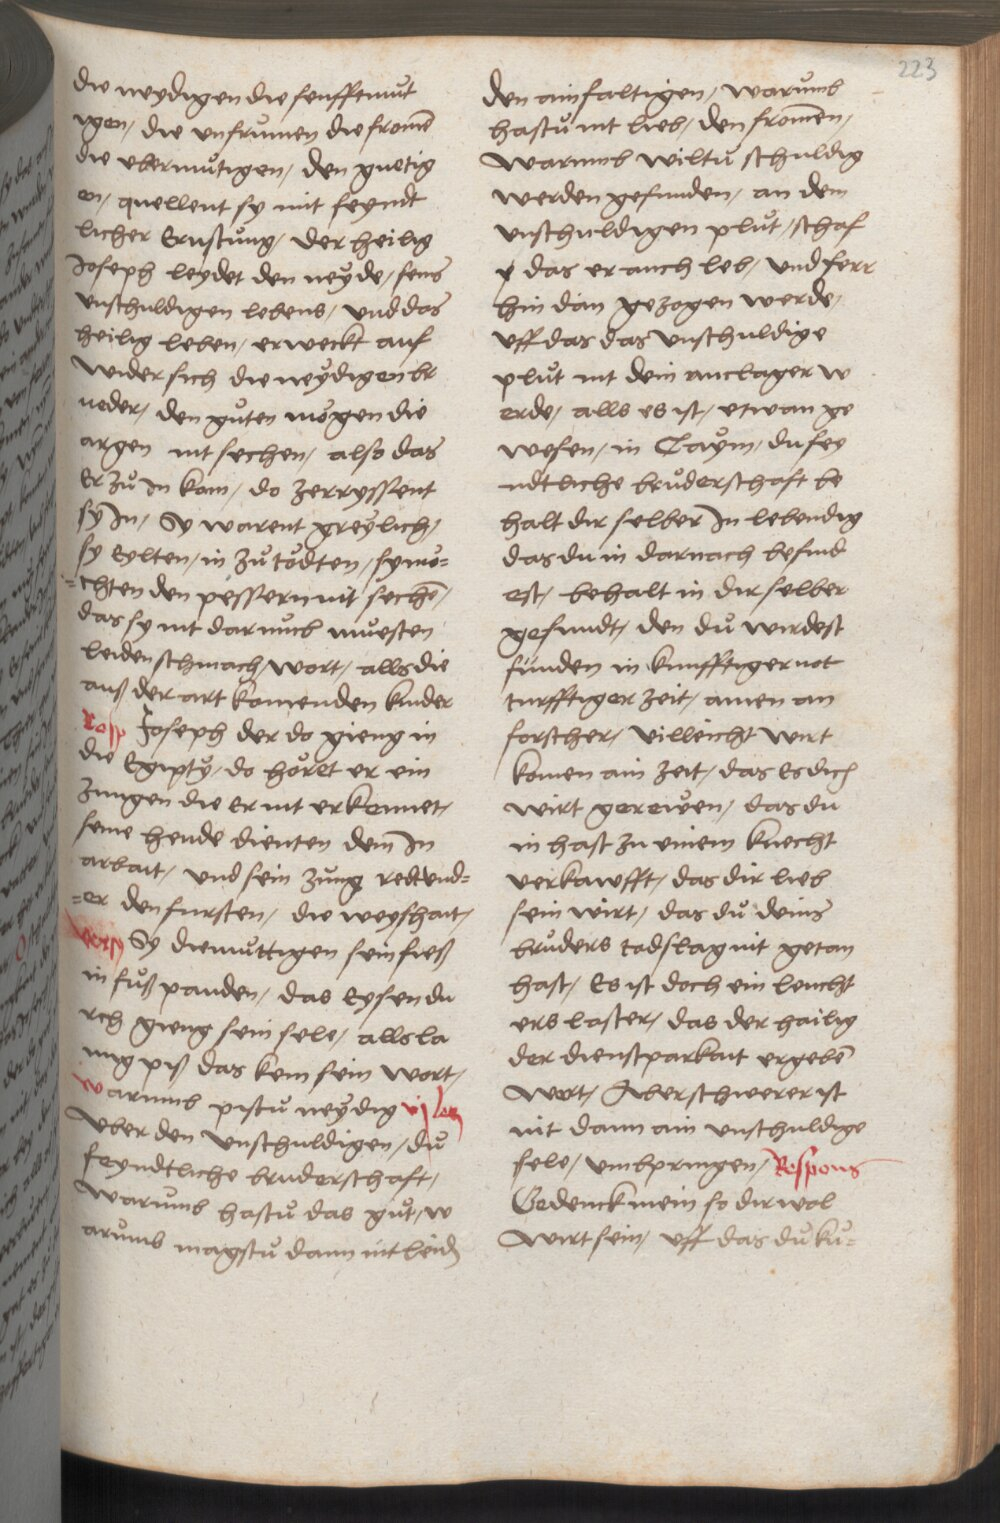 223
die neydigen die senfftmut
igen, die unfrumen die fromē
die ubermutigen, den guetig
en, quellent sy mit feyndt
licher Erustung, der heilig
Joseph leydet den neyde, sens
unschuldigen lebens, und das
heilig leben, erweckt auf
wider sich die neydigen br
ueder, den guten mogen die
argen nit sechen, also das
Er zu in kom, do zerryssent
sy in, Sy warent greylich,
sy Eylten, in zu todten, sy mo=
=chten den pessern nit sechē,
das sy nit darumb muesten
leiden schmach, wort, alls die
auß der art komenden kinder
Resp Joseph der do gieng in
die Egipty, do horet er ein
zungen die Er nit erkennet,
seine hende dienten dem In
arbait, und sein zung redt und=
=er den fursten, die weyshait,
vers Sy diemuttigen sein fieß
in fuß panden, das Eysen du
rch gieng sein sele, alls la
ung piß das kem sein wort,
warumb pistu neydig vj lec
uber den unschuldigen, du
feyndtliche bruderschaft,
warumb hastu das gut, w
arumb magstu dann nit leidē
den ainfaltigen, warumb
hastu nit lieb, den fromen,
warumb wiltu schuldig
werden gefunden, an dem
unschuldigen plut, schaf
das er auch leb, und ferr
hin dan gezogen werde,
uff das das unschuldige
plut nit dein anclager w
erde, alls es ist, etwan ge
wesen, in Caym, du fey
ndtliche bruderschaft be
halt dir selber In lebendig
das du in darnach befind
est, behalt in dir selber
gesundt, den du wirdest
finden in kunfftiger not
turfftiger zeit, amen an
forscher, villeicht wirt
komen ain zeit, das es dich
wirt gerewen, das du
in hast zu einem knecht
verkawfft, das dir lieb
sein wirt, das du deins
bruders todslag nit getan
hast, Es ist doch ein leucht
ers laster, das der hailig
der dienstparkait ergebē
wert, Aber schwerer ist
nit dann ain unschuldige
sele, umbpringen, Respons
Gedenck mein so dir wol
wirt sein, uff das du ku=